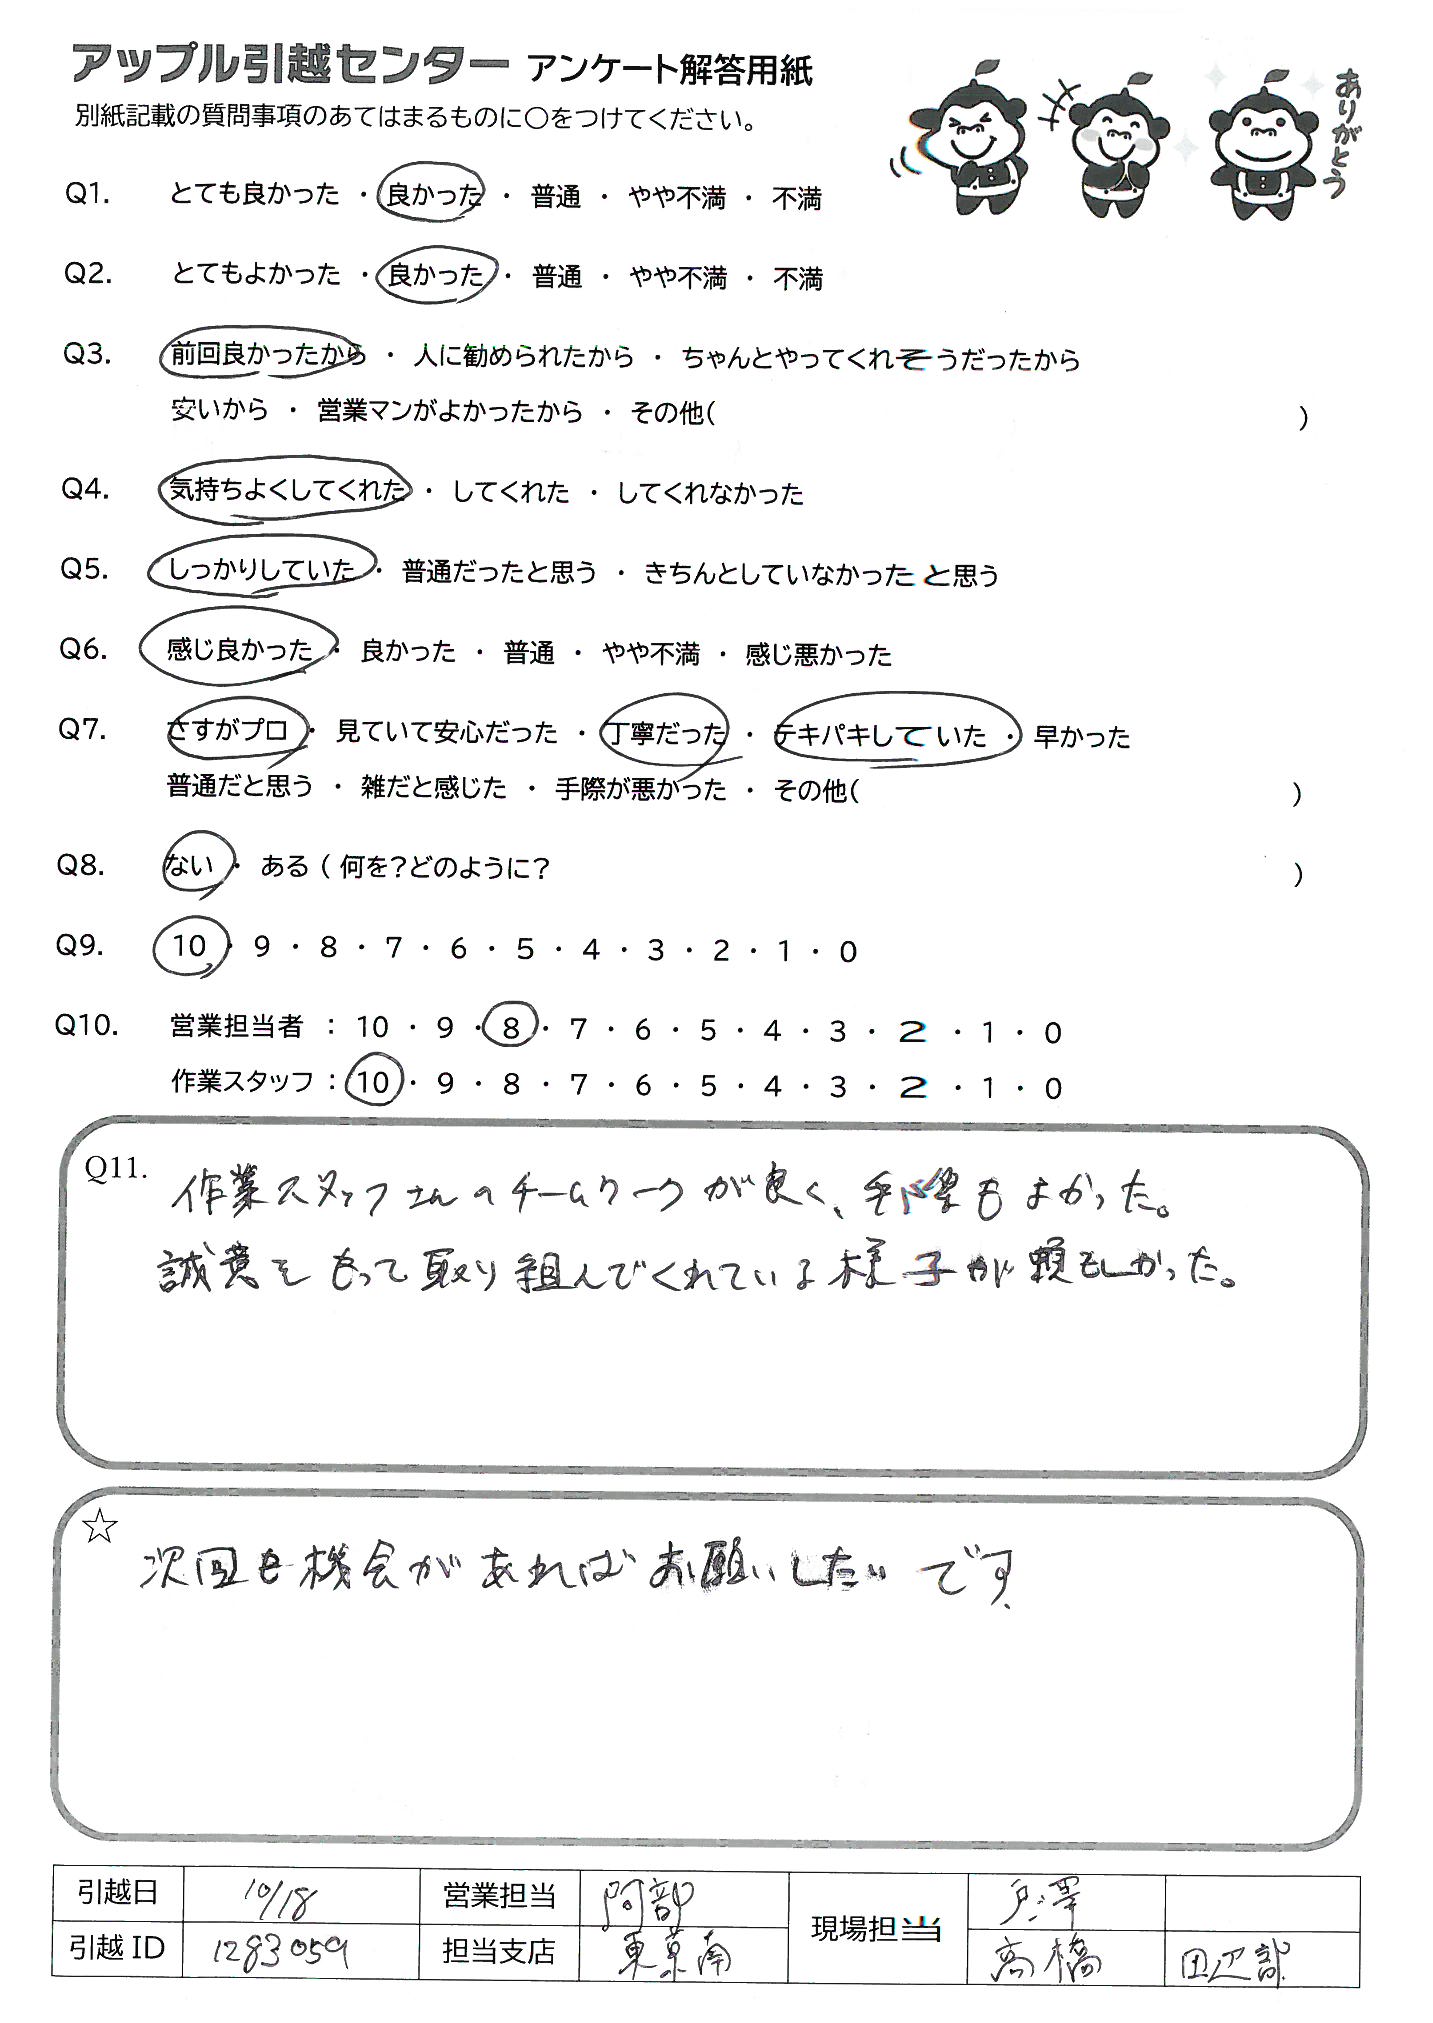 アップル引越センター アンケート解答用紙
別紙記載の質問事項のあてはまるものに○をつけてください。
ありがとう
Q1. とても良かった ・ 良かった ・ 普通 ・ やや不満 ・ 不満
Q2. とてもよかった ・ 良かった ・ 普通 ・ やや不満 ・ 不満
Q3. 前回良かったから ・ 人に勧められたから ・ ちゃんとやってくれそうだったから
安いから ・ 営業マンがよかったから ・ その他( )
Q4. 気持ちよくしてくれた ・ してくれた ・ してくれなかった
Q5. しっかりしていた ・ 普通だったと思う ・ きちんとしていなかったと思う
Q6. 感じ良かった ・ 良かった ・ 普通 ・ やや不満 ・ 感じ悪かった
Q7. さすがプロ ・ 見ていて安心だった ・ 丁寧だった ・ テキパキしていた ・ 早かった
普通だと思う ・ 雑だと感じた ・ 手際が悪かった ・ その他( )
Q8. ない ・ ある ( 何を?どのように? )
Q9. 10 ・ 9 ・ 8 ・ 7 ・ 6 ・ 5 ・ 4 ・ 3 ・ 2 ・ 1 ・ 0
Q10. 営業担当者 : 10 ・ 9 ・ 8 ・ 7 ・ 6 ・ 5 ・ 4 ・ 3 ・ 2 ・ 1 ・ 0
作業スタッフ : 10 ・ 9 ・ 8 ・ 7 ・ 6 ・ 5 ・ 4 ・ 3 ・ 2 ・ 1 ・ 0
Q11. 作業スタッフさんのチームワークが良く、手際もよかった。
誠意をもって取り組んでくれている様子が頼もしかった。
☆
次回も機会があればお願いしたいです、
引越日 10/18 営業担当 阿部 現場担当 戸澤
引越ID 1283059 担当支店 東京南 高橋 田辺部